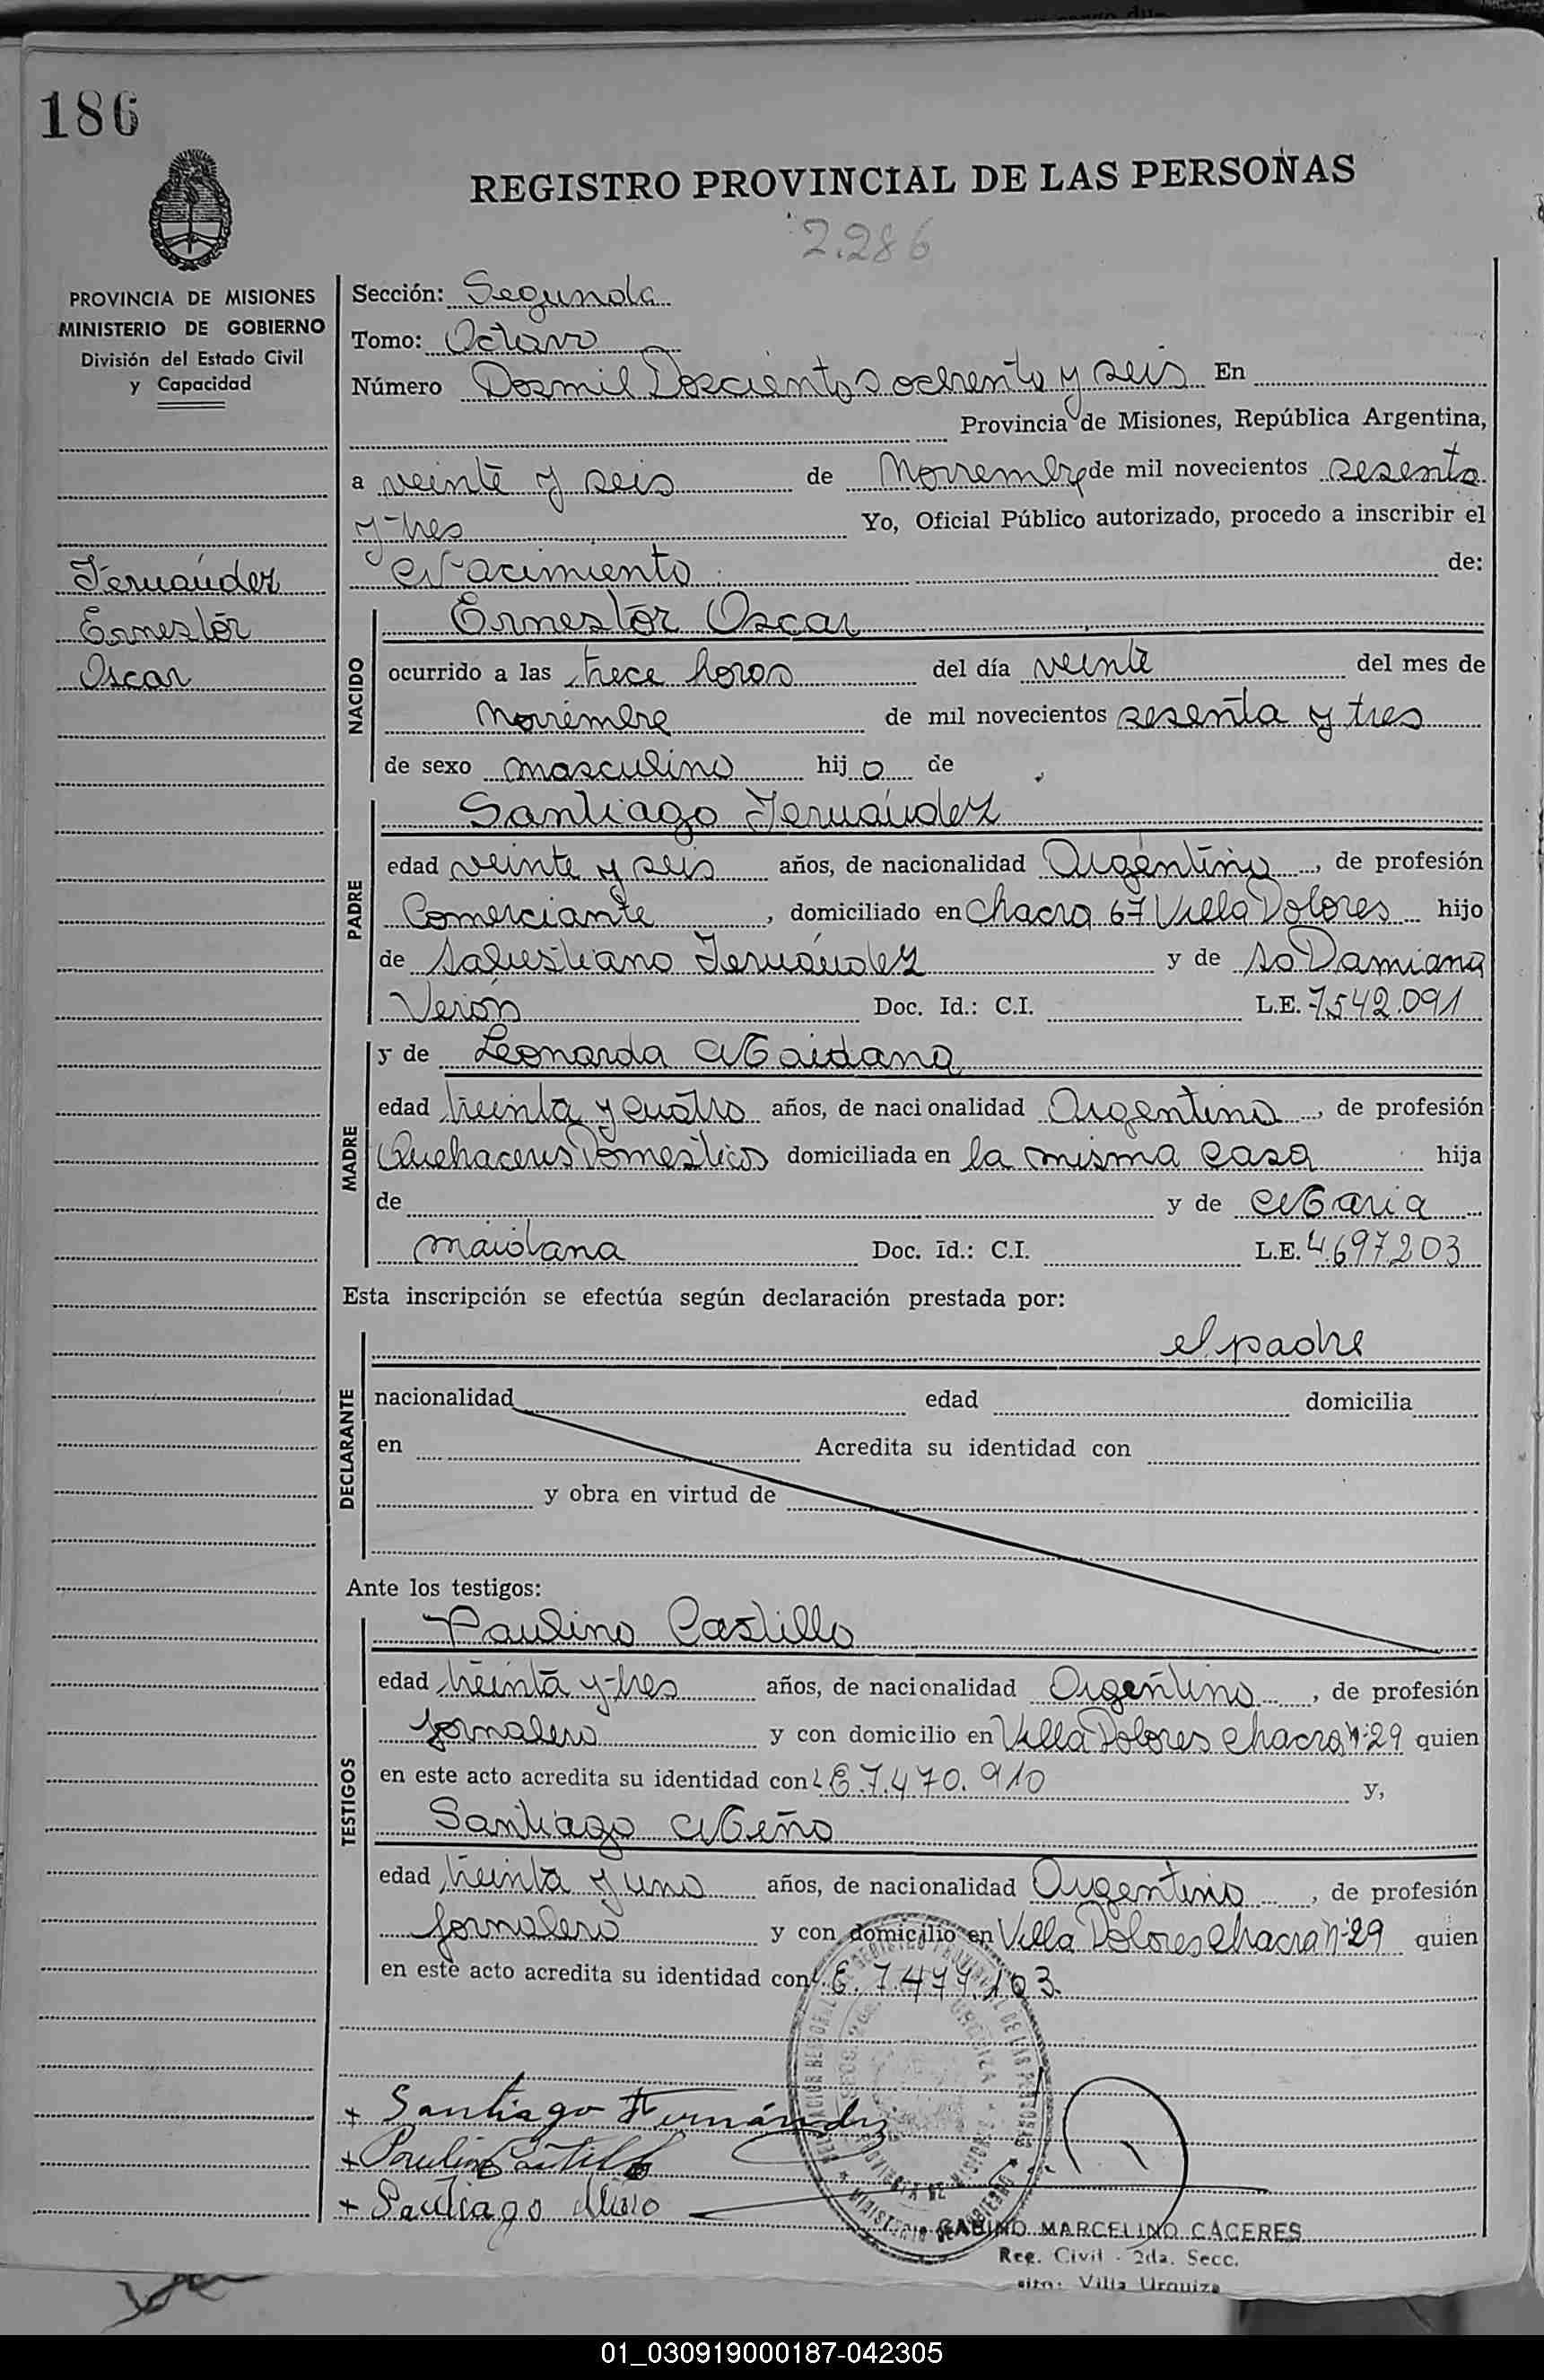 186
REGISTRO PROVINCIAL DE LAS PERSONAS
2.286
PROVINCIA DE MISIONES
MINISTERIO DE GOBIERNO
División del Estado Civil
y Capacidad
Fernández
Ernestor
Oscar
Sección: Segunda
Tomo: Octavo
Número Dosmil Doscientos ochenta y seis En
Provincia de Misiones, República Argentina,
a veinte y seis de Noviembre de mil novecientos sesenta
y tres Yo, Oficial Público autorizado, procedo a inscribir el
Nacimiento de:
NACIDO
Ernestor Oscar
ocurrido a las trece horas del día veinte del mes de
Noviembre de mil novecientos sesenta y tres
de sexo masculino hijo de
PADRE
Santiago Fernández
edad veinte y seis años, de nacionalidad Argentino, de profesión
Comerciante, domiciliado en Chacra 67 Villa Dolores hijo
de Salustiano Fernández y de Damiana
Verón Doc. Id.: C.I. L.E. 7.542.091
MADRE
y de Leonarda Maidana
edad treinta y cuatro años, de nacionalidad Argentina, de profesión
Quehaceres Domesticos domiciliada en la misma casa hija
de y de Maria
maidana Doc. Id.: C.I. L.E. 4.697.203
Esta inscripción se efectúa según declaración prestada por:
DECLARANTE
el padre
nacionalidad edad domicilia
en Acredita su identidad con
y obra en virtud de
Ante los testigos:
TESTIGOS
Paulino Castillo
edad treinta y tres años, de nacionalidad Argentino, de profesión
Jornalero y con domicilio en Villa Dolores chacra Nº 29 quien
en este acto acredita su identidad con L.E. 7.470.910 y,
Santiago Meño
edad treinta y uno años, de nacionalidad Argentino, de profesión
Jornalero y con domicilio en Villa Dolores chacra Nº 29 quien
en este acto acredita su identidad con L.E. 7.477.103
+ Santiago Fernández
+ Paulino Castillo
+ Santiago
GABINO MARCELINO CACERES
Reg. Civil - 2da. Secc.
Villa Urquiza
01_030919000187-042305